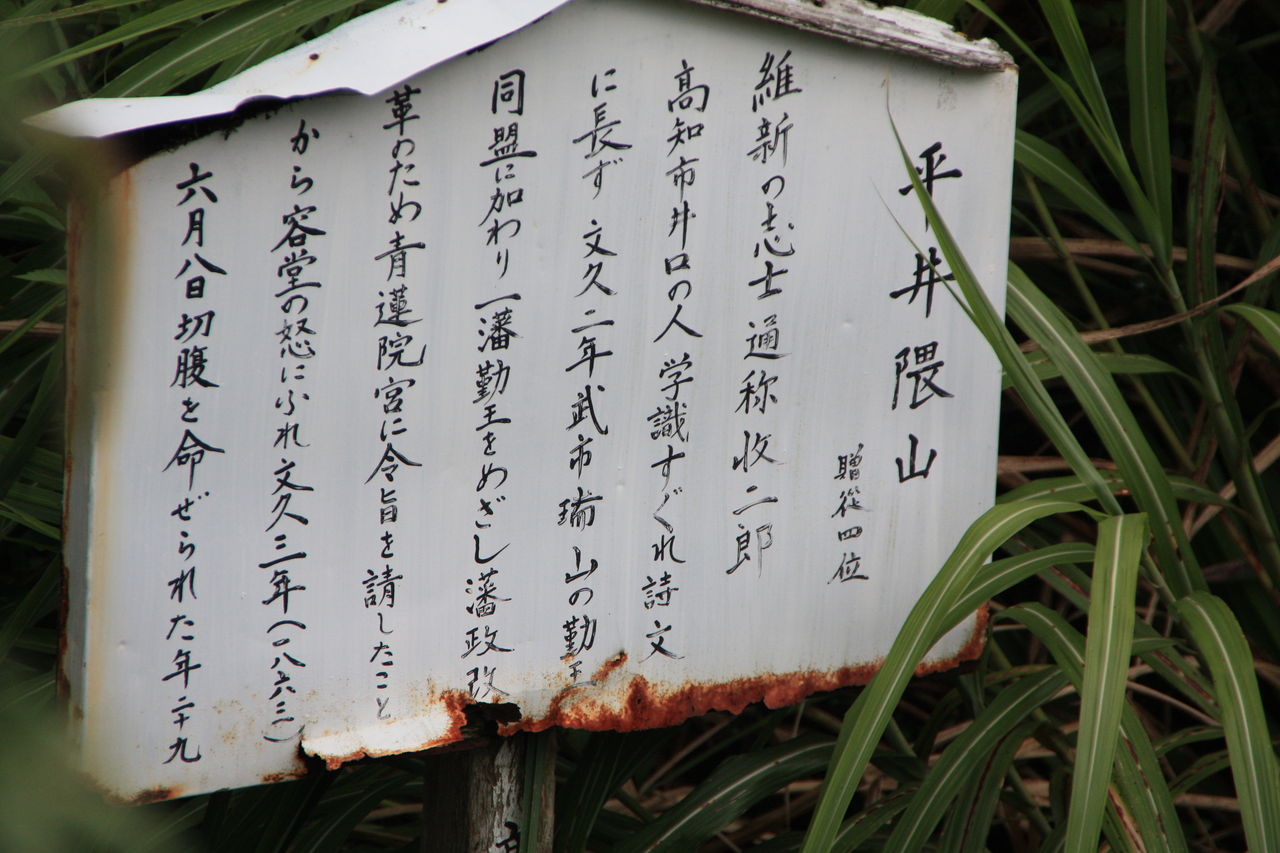 平井隈山
贈從四位
維新の志士 通称 收二郎
高知市井口の人 学識すぐれ 詩文
に長ず 文久二年武市瑞山の勤王
同盟に加わり 一藩勤王をめざし藩政改
革のため青蓮院宮に令旨を請したこと
から容堂の怒にふれ文久三年(一八六三)
六月八日切腹を命ぜられた年二十九